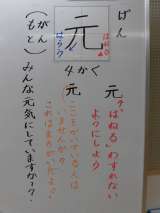 げん
元
はねる
はらう
4かく
元
「はねる」わすれない
ようにしよう
元
ここをついている人は
いませんか?
これはまちがいだよ!
(がん
もと)
みんな元気にしていますか??